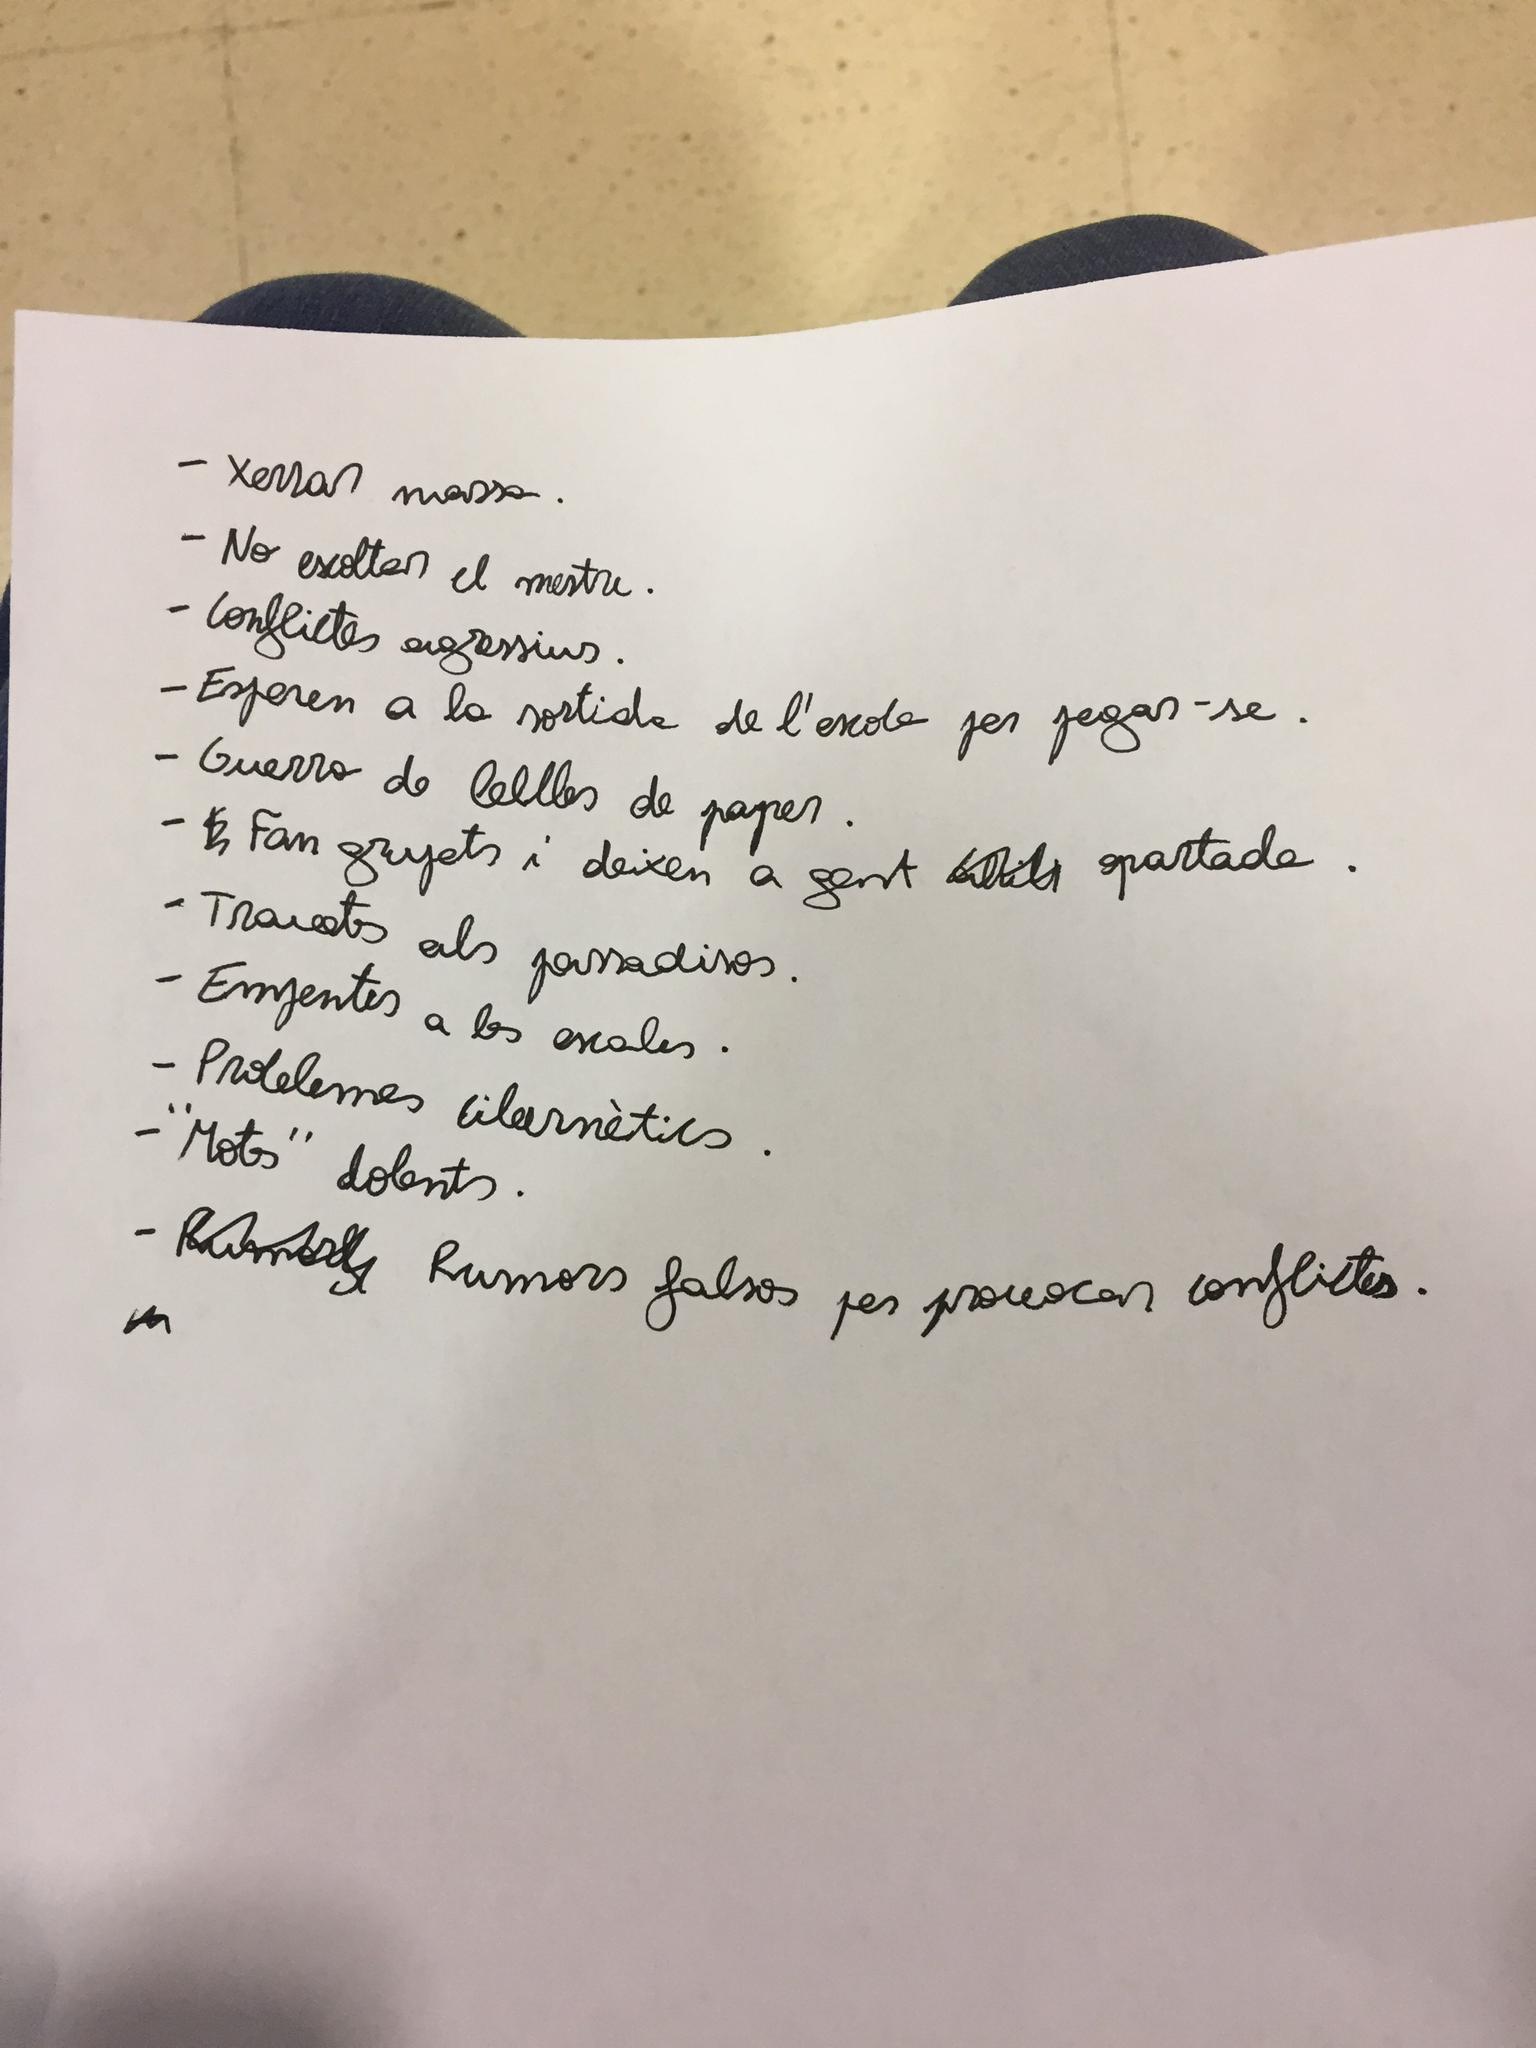 - Xerrar massa.
- No escoltar el mestre.
- Conflictes agressius.
- Esperen a la sortida de l'escola per pegar-se.
- Guerra de bolles de paper.
- Fan grupets i deixen a gent apartada.
- Travetes als passadisos.
- Empentes a les escales.
- Problemes cibernètics.
- "Mots" dolents.
- Rumors Rumors falsos per provocar conflictes.